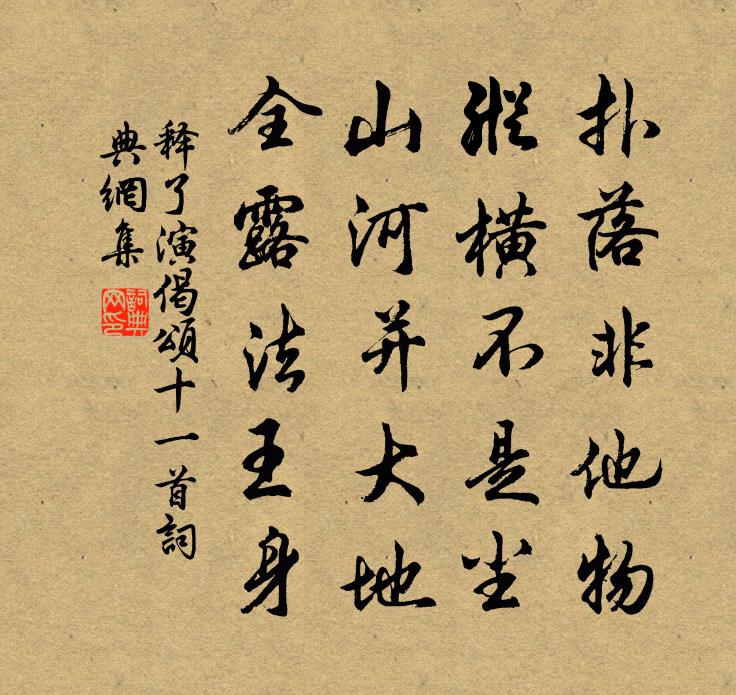 扑落非他物
縱横不是尘
山河并大地
全露法王身
释了演偈頌十一首詞
典網集
詞典网印